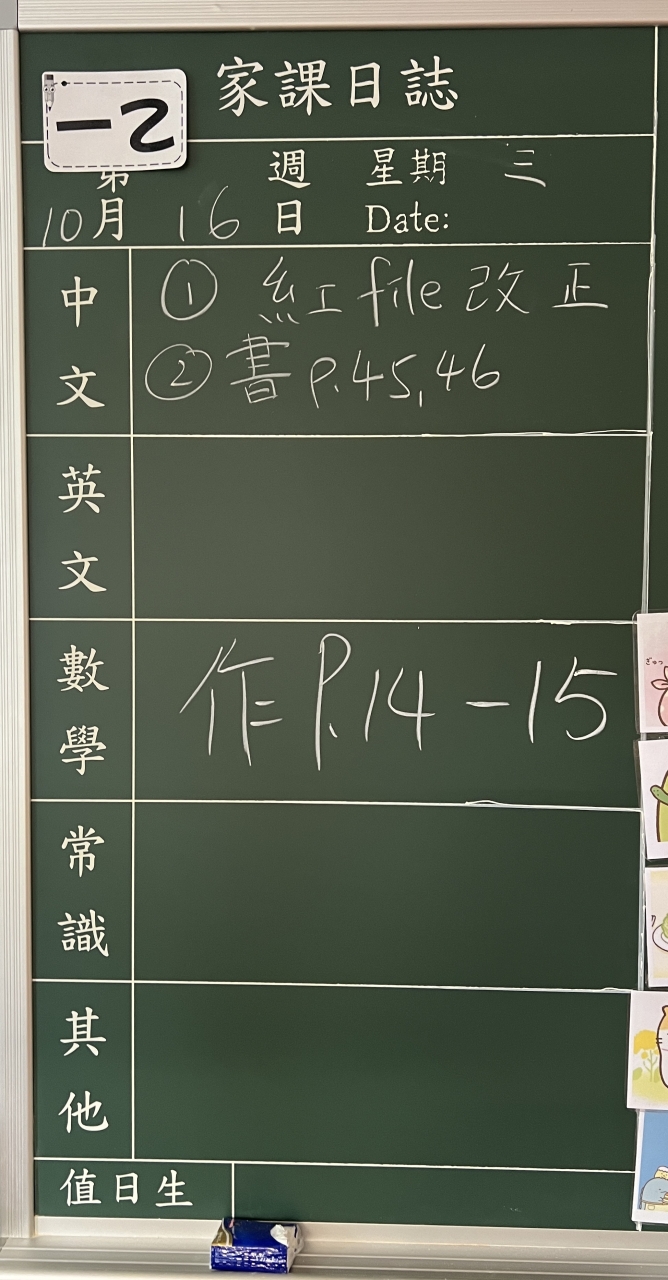 家課日誌
一乙
第 週 星期 三
10月 16日 Date:
中文
① 紅file改正
② 書 P.45,46
英文
數學
作 P.14-15
常識
其他
值日生
ぎゅっ